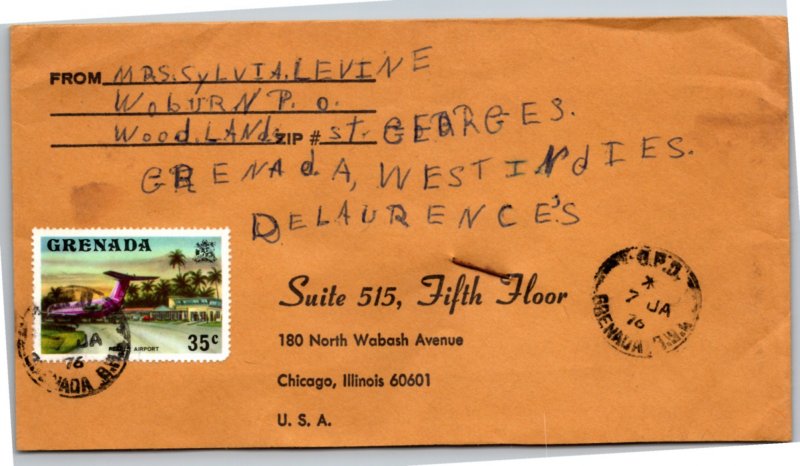 FROM MRS. SYLVIA. LEVINE
WOBURN P. O.
WOOD. LANDS ZIP # ST- GEORGES.
GRENADA, WEST INDIES.
DELAURENCE'S
GRENADA
35c
AIRPORT
Suite 515, Fifth Floor
180 North Wabash Avenue
Chicago, Illinois 60601
U. S. A.
JA
76
GRENADA B.W.I.
G.P.O.
7 JA
76
GRENADA, B.W.I.